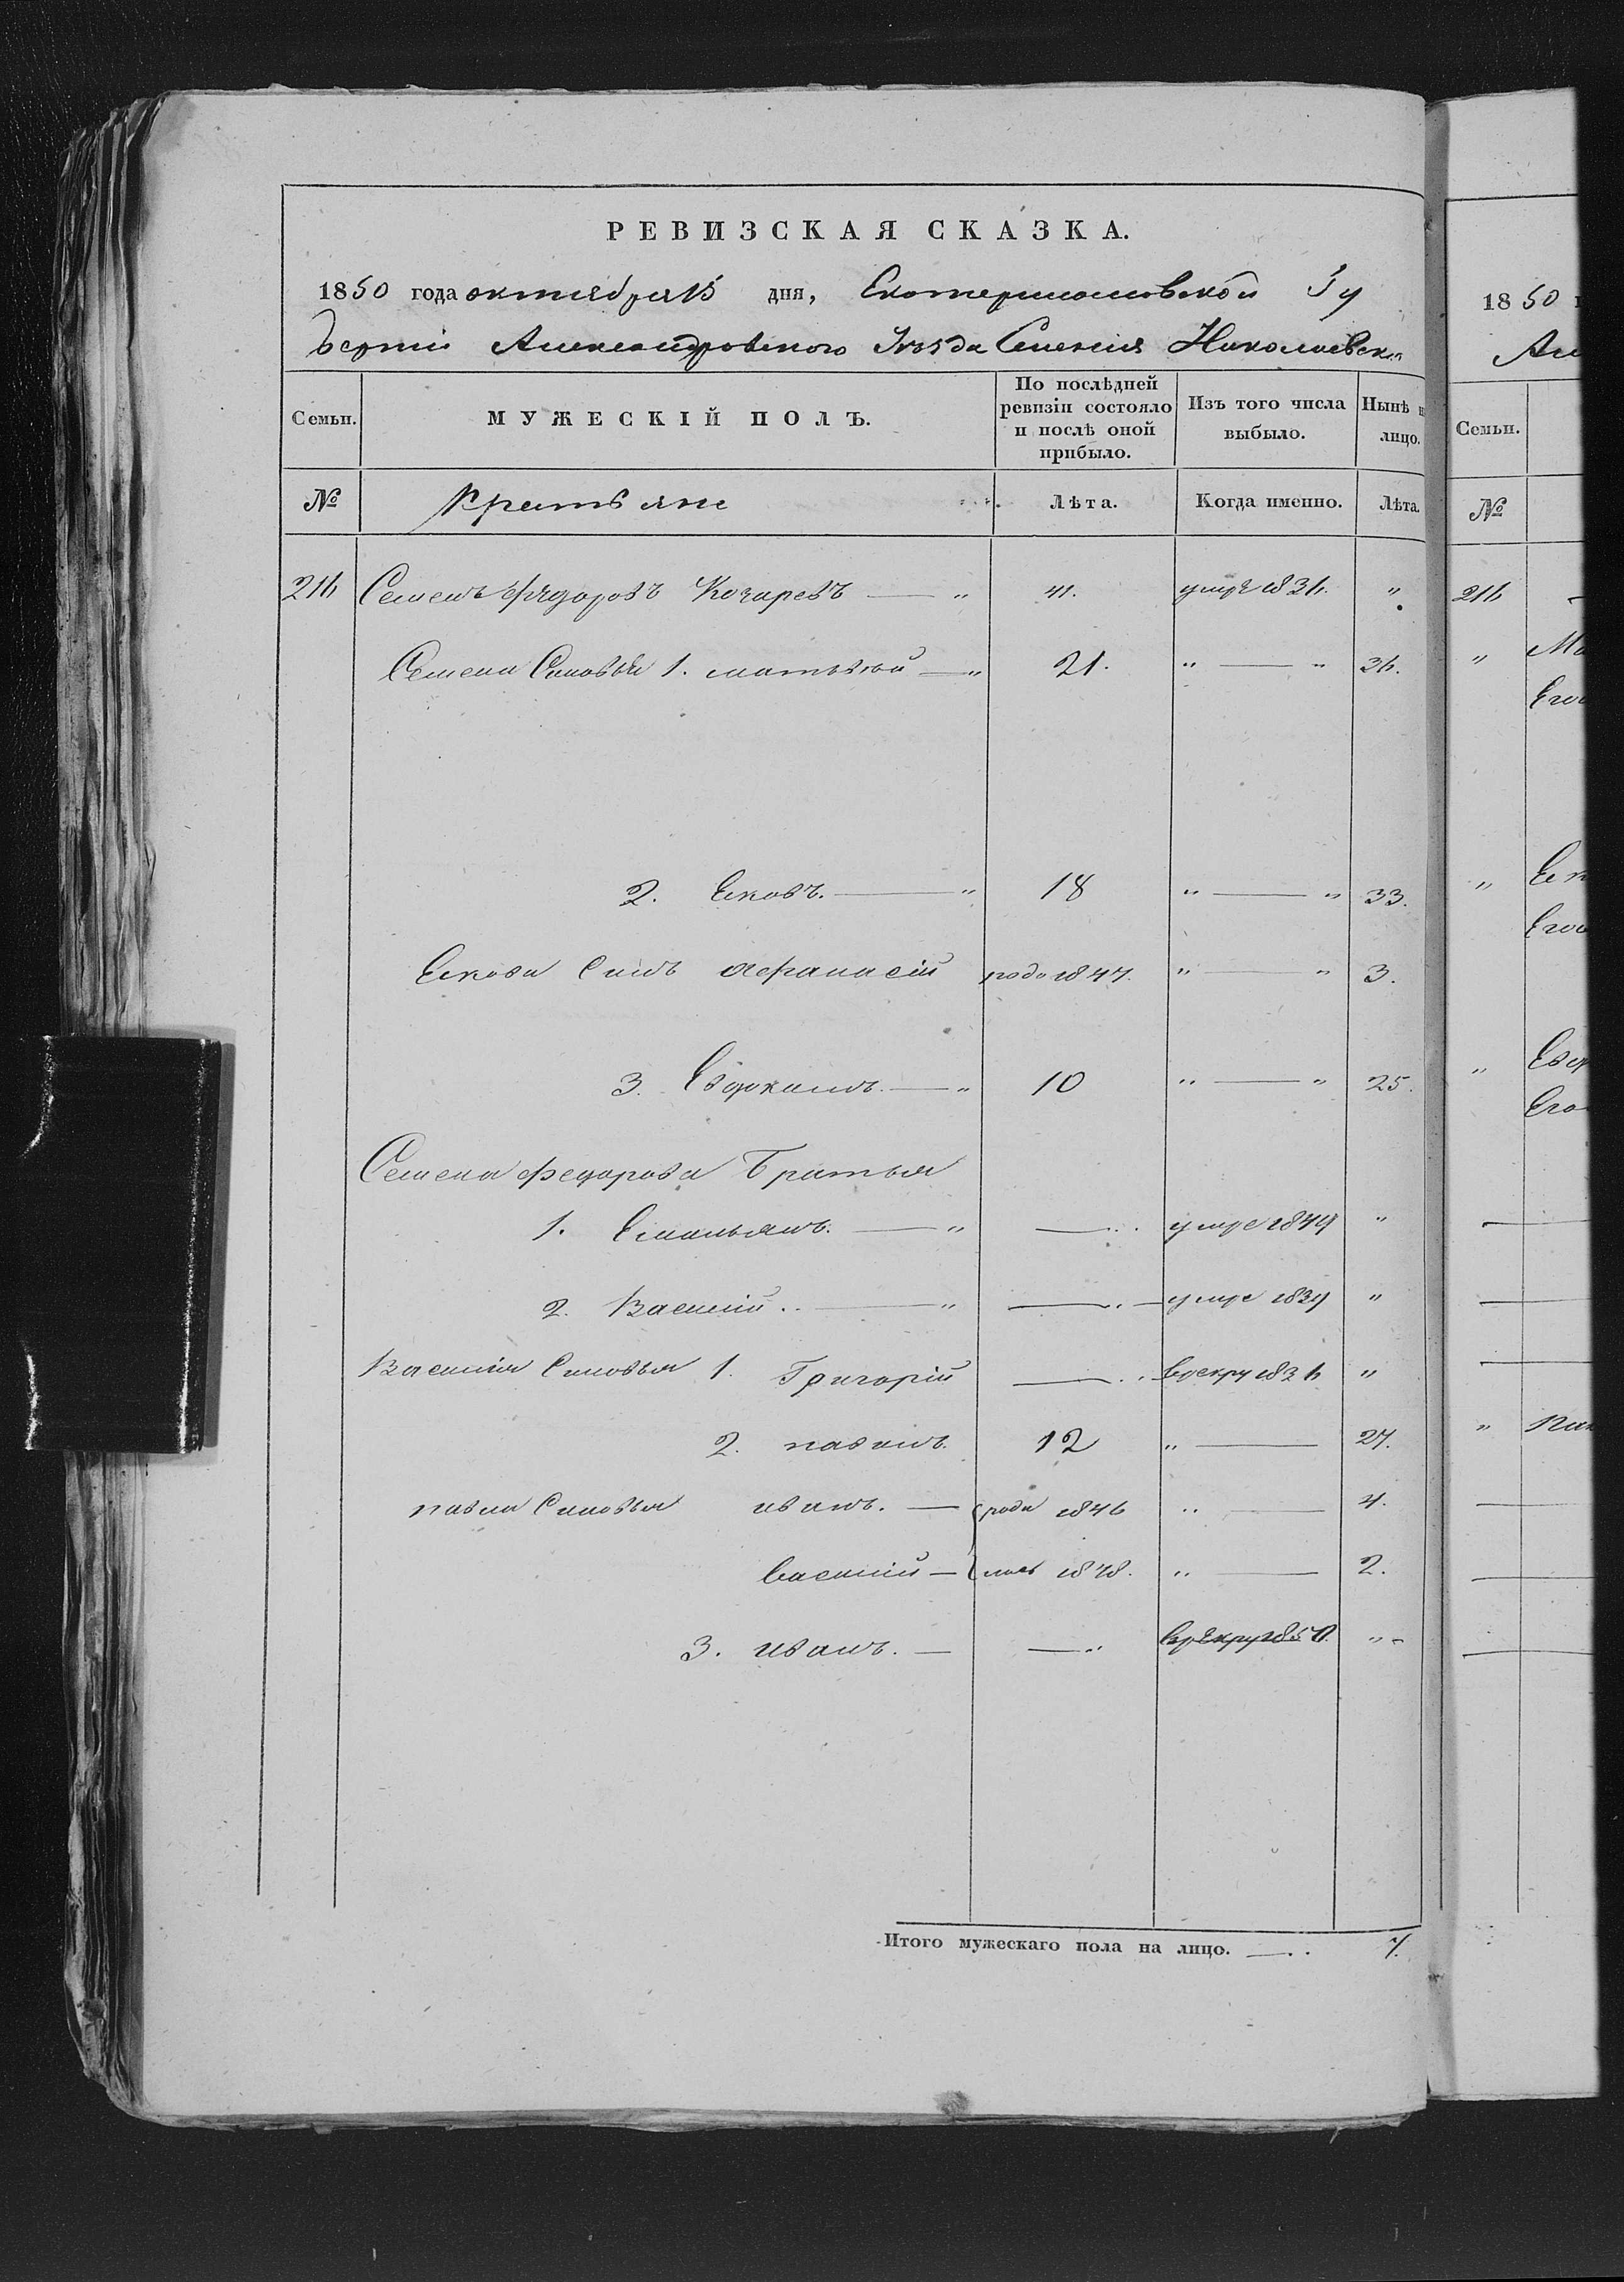 РЕВИЗСКАЯ СКАЗКА.
1850 года октября 15 дня, Екатеринославской Гу
берніи Александровского Уезда Селенія Николаевск
Семьи. МУЖЕСКІЙ ПОЛЪ. По послѣдней ревизіи состояло и послѣ оной прибыло. Изъ того числа выбыло. Нынѣ на лицо.
№ Крестьяне Лѣта. Когда именно. Лѣта.
216 Семенъ Федоровъ Кочаревъ — " 41. умре 1836. "
Семена Сыновья 1. матвѣй — " 21. " — " 36.
2. Еков. — " 18 " — " 33.
Екова Сынъ Афанасій родо 1847. " — " 3.
3. Евдокимъ. — " 10 " — " 25.
Семена Федорова Братья
1. Емельянъ. — " — умре 1849 "
2. Василій. — " — умре 1839 "
Василія Сыновья 1. Григорій — врекру 1836 "
2. павелъ. 12 " — 27.
павла Сыновья иванъ. — роди 1846 " — 4.
василій — лись 1848. " — 2.
3. иванъ. — — " врекру 1850. "
Итого мужескаго пола на лицо. — 7.
1850
Семьи.
№
216